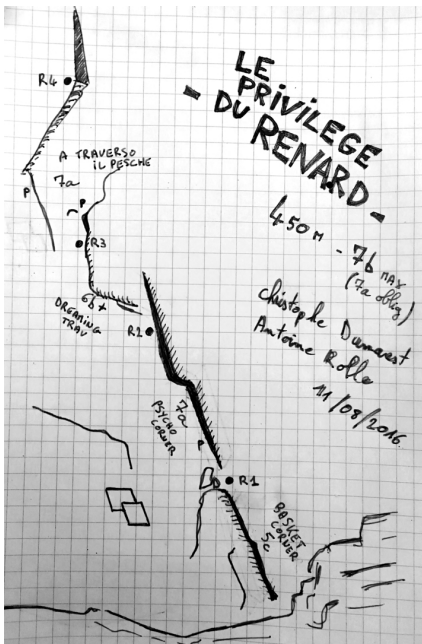 LE
PRIVILEGE
- DU RENARD -
450M - 7b MAX
(7a oblig)
Christophe Dumarest
Antoine Rolle
11/08/2016
R4
A TRAVERSO
IL PESCHE
7a
P
P
R3
6b+
DREAMING
TRAV
R2
7a
PSYCHO
CORNER
P
R1
BASKET
CORNER
5c